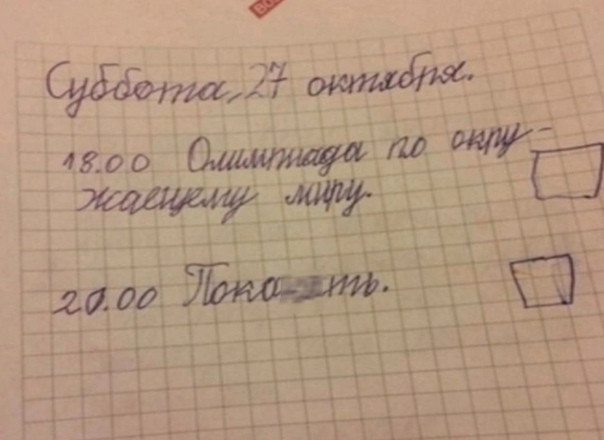 Суббота, 27 октября.
18.00 Олимпиада по окру-
жаещему миру.
20.00